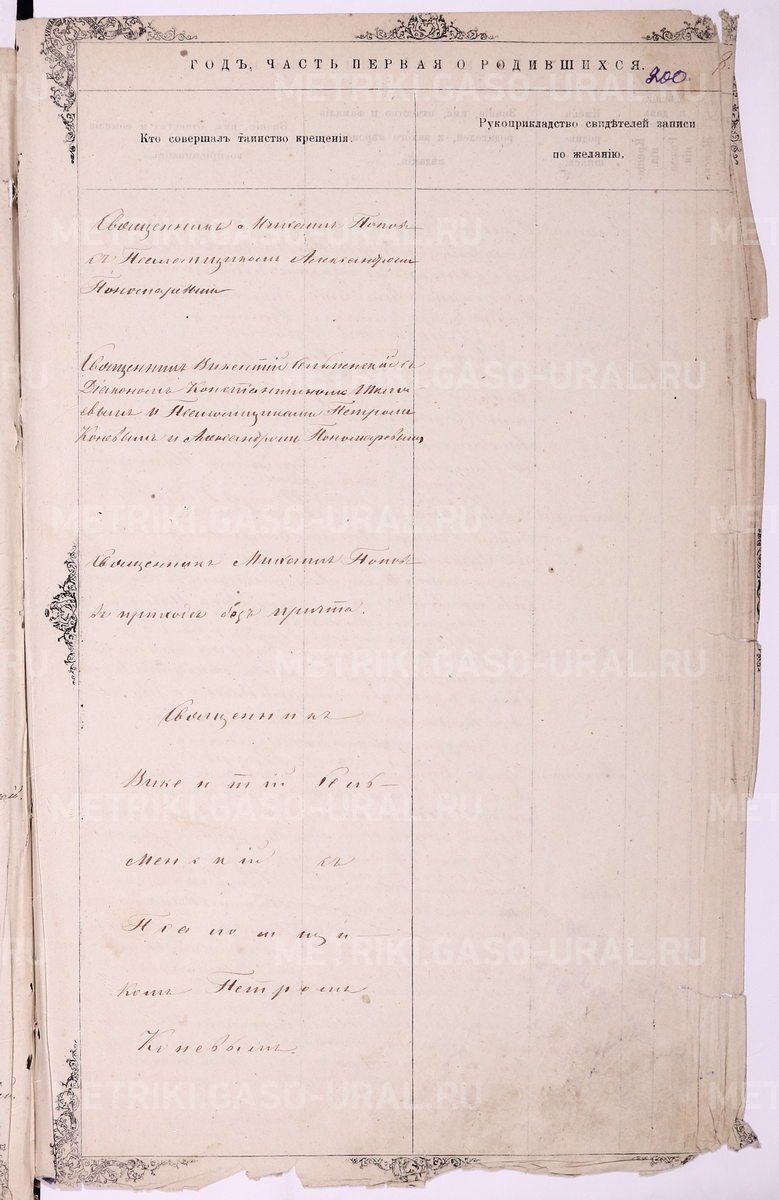 ГОДЪ, ЧАСТЬ ПЕРВАЯ О РОДИВШИХСЯ.
200.
Кто совершалъ таинство крещенія.
Рукоприкладство свидѣтелей записи
по желанію.
Священникъ Михаилъ Поповъ
съ Псаломщикомъ Александромъ
Пономаревымъ
Священникъ Викентій съ
Діакономъ Константиномъ
евымъ и Псаломщиками Петромъ
Коневымъ и Александромъ Пономаревымъ
Священникъ Михаилъ Поповъ
въ приходѣ безъ причта.
Священникъ
Викентій
съ
Псаломщи-
комъ Петромъ
Коневымъ.
METRIKI.GASO-URAL.RU